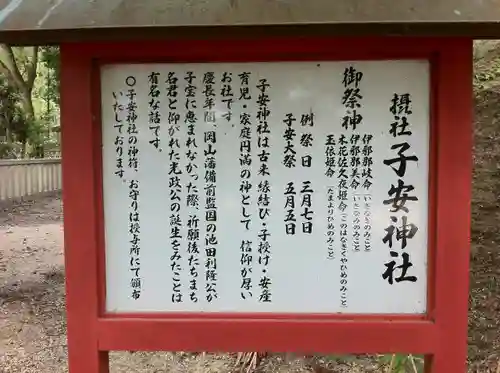 摂社 子安神社
御祭神
伊邪那岐命(いざなぎのみこと)
伊邪那美命(いざなみのみこと)
木花佐久夜姫命(このはなさくやひめのみこと)
玉依姫命(たまよりひめのみこと)
例祭日 三月七日
子安大祭 五月五日
子安神社は古来、縁結び・子授け・安産
育児・家庭円満の神として、信仰が厚い
お社です。
慶長年間、岡山藩備前監国の池田利隆公が
子宝に恵まれなかった際、祈願後たちまち
名君と仰がれた光政公の誕生をみたことは
有名な話です。
〇子安神社の神符、お守りは授与所にて頒布
いたしております。